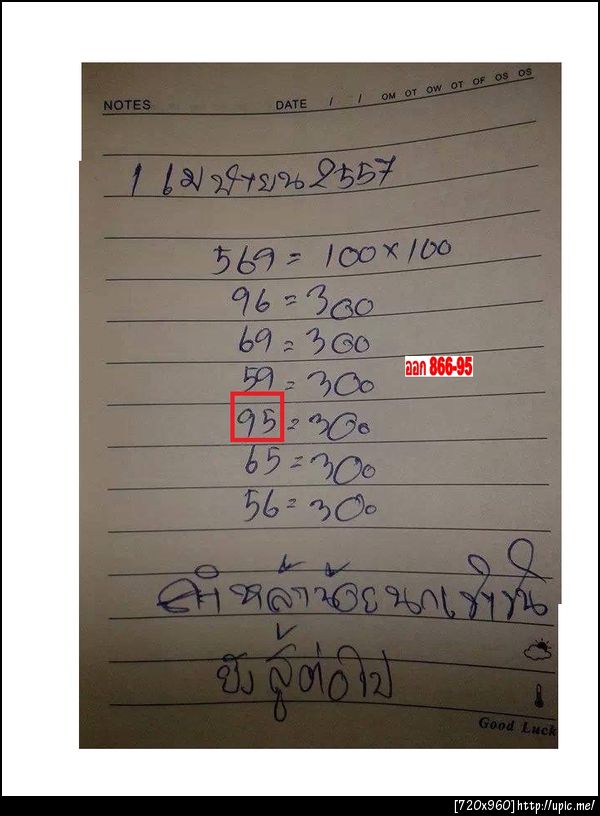 NOTES DATE / / OM OT OW OT OF OS OS
1 เมษายน 2557
569 = 100 × 100
96 = 300
69 = 300
59 = 300
ออก 866-95
95 = 300
65 = 300
56 = 300
หล้าน้อย
ยังสู้ต่อไป
Good Luck
[720x960] http://upic.me/